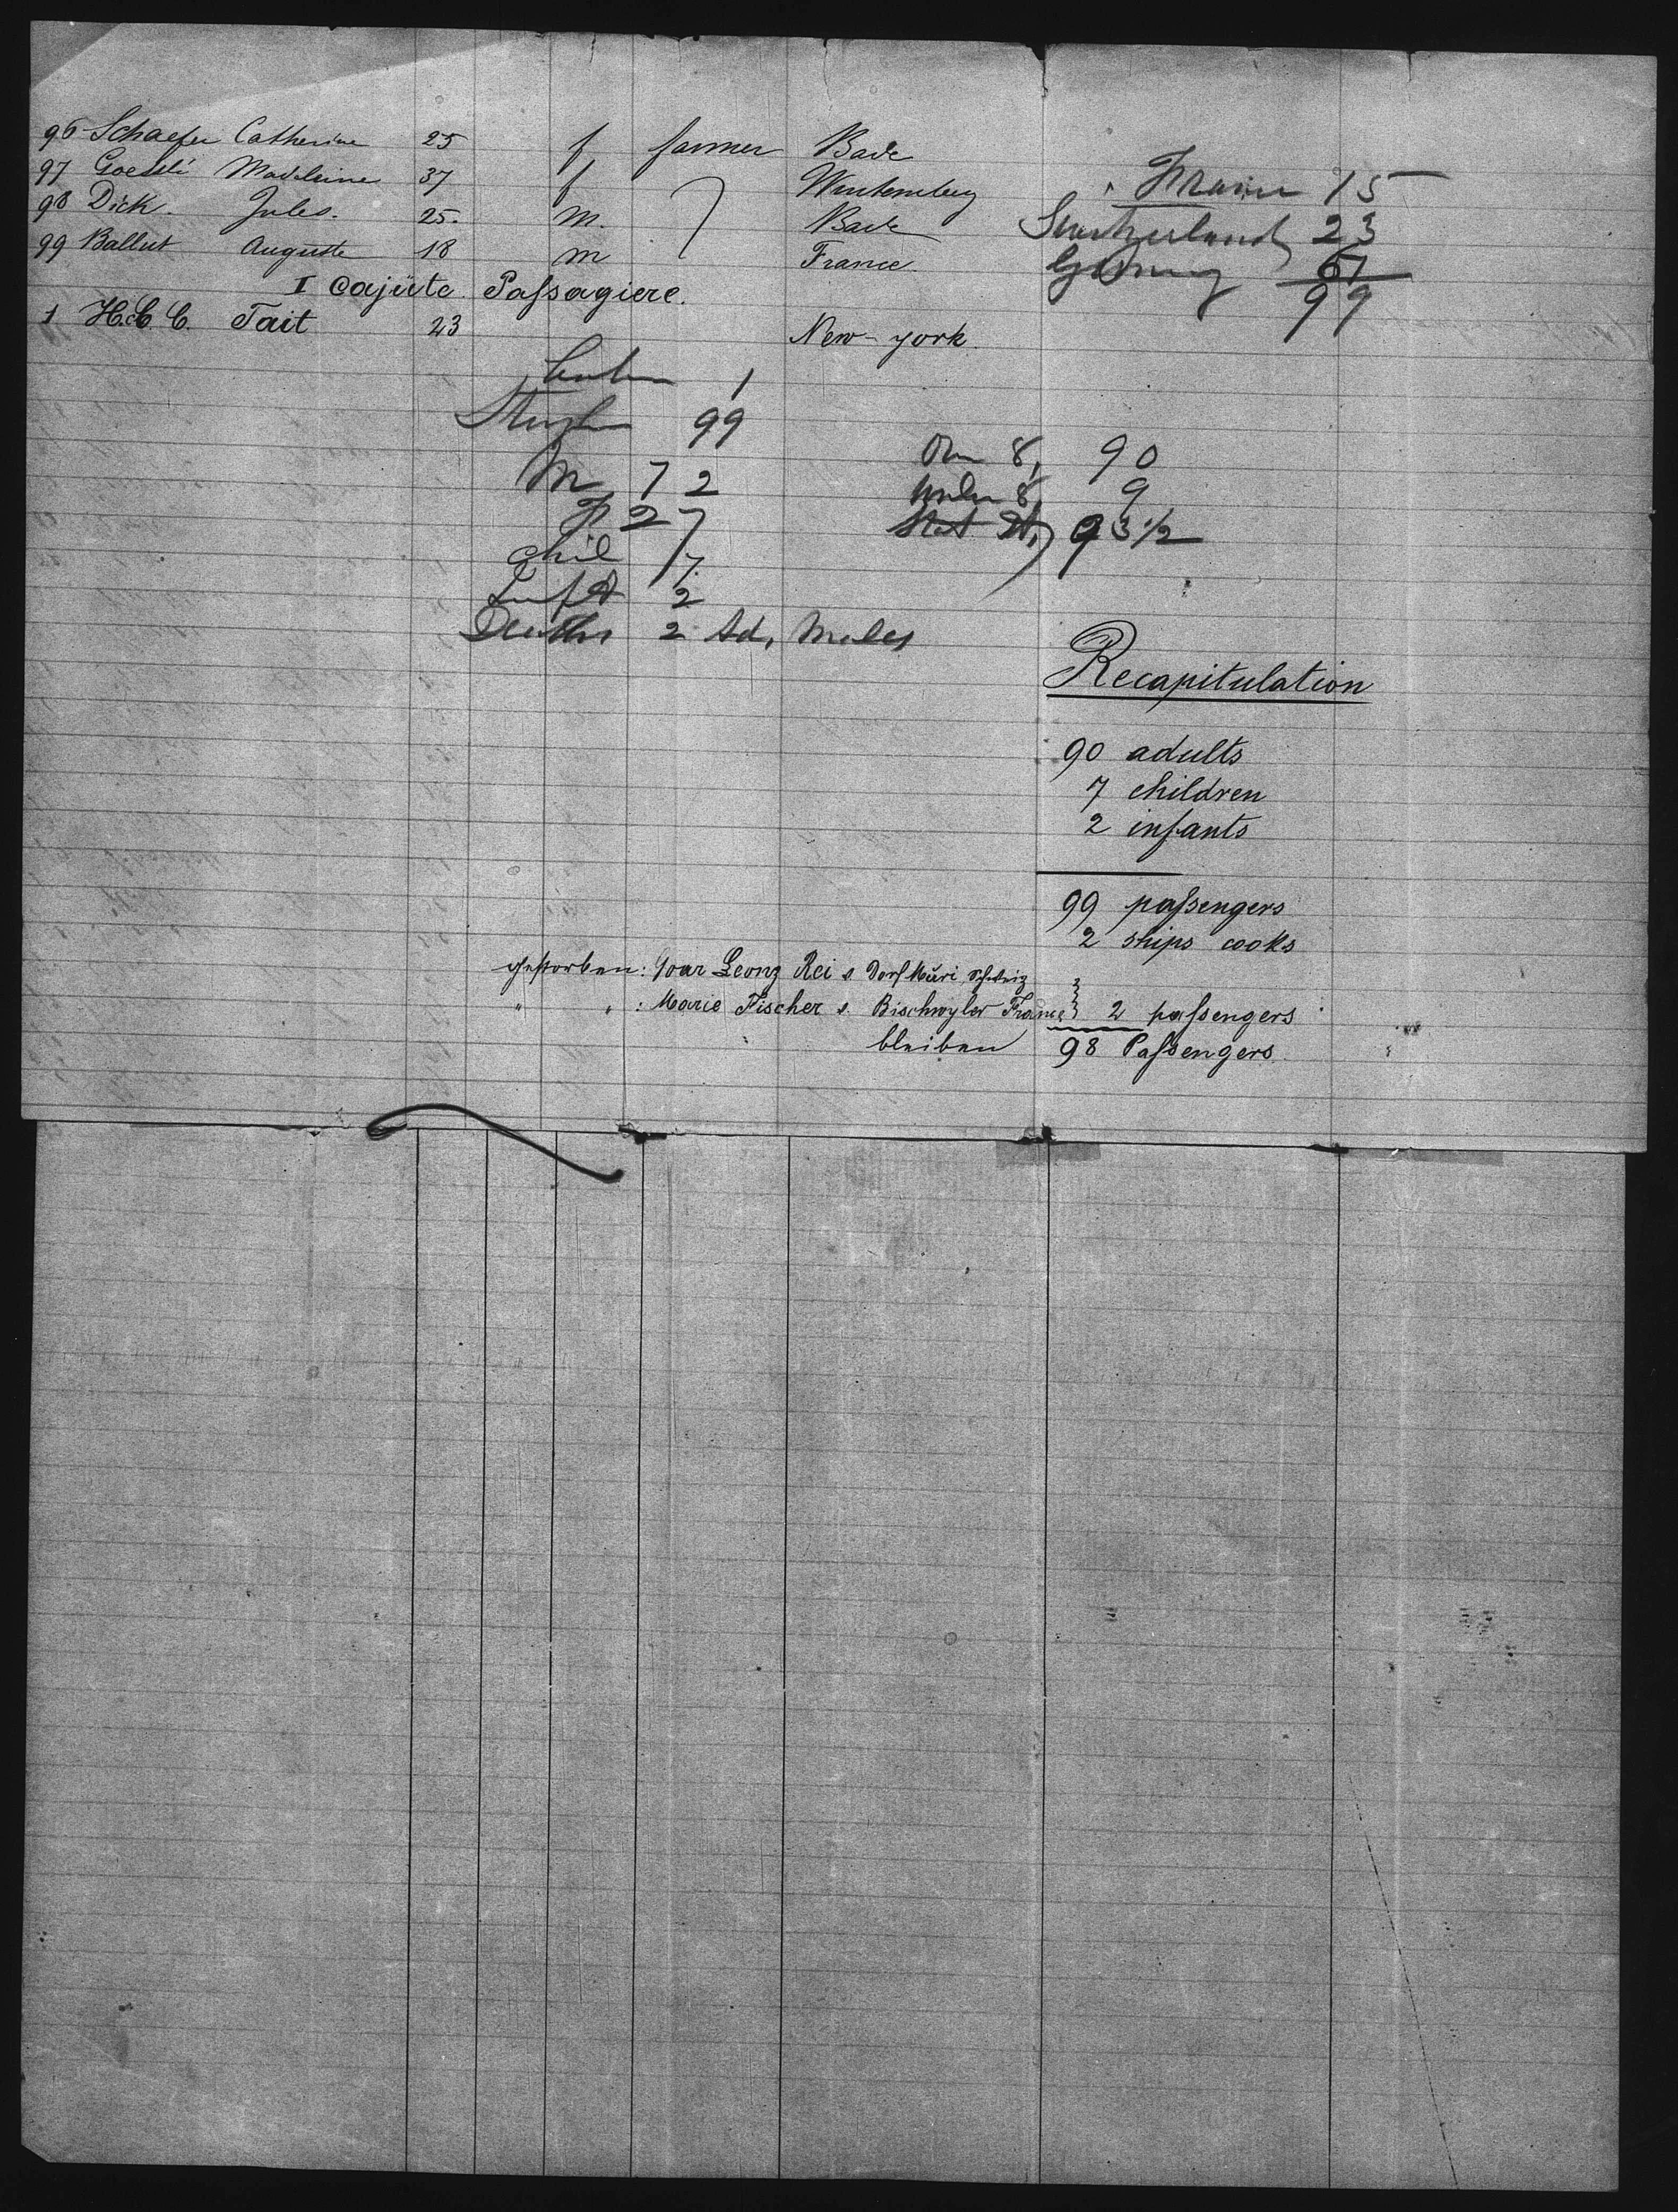 96 Schaefer Catherine 25 f farmer Bade
97 Madeleine 37 f Wurtemberg
98 Dick. Jules. 25. m. Bade
99 Ballut Auguste 18 m France
France 15
Switzerland 23
Germany 61
99
I Cajüte Paſsagiere.
1 H. C. C. Tait 23 New-york
Cabin 1
99
M 72
F 27
Chil 7
Inft 2
Deaths 2 Ad, Males
Over 8, 90
Under 8, 9
Stat 93 1/2
Recapitulation
90 adults
7 children
2 infants
99 paſsengers
2 ships cooks
gestorben: Leonz Rei s Dorf Muri Schweiz
" " : Marie Fischer s. Bischwyler France } 2 paſsengers
bleiben 98 Paſsengers